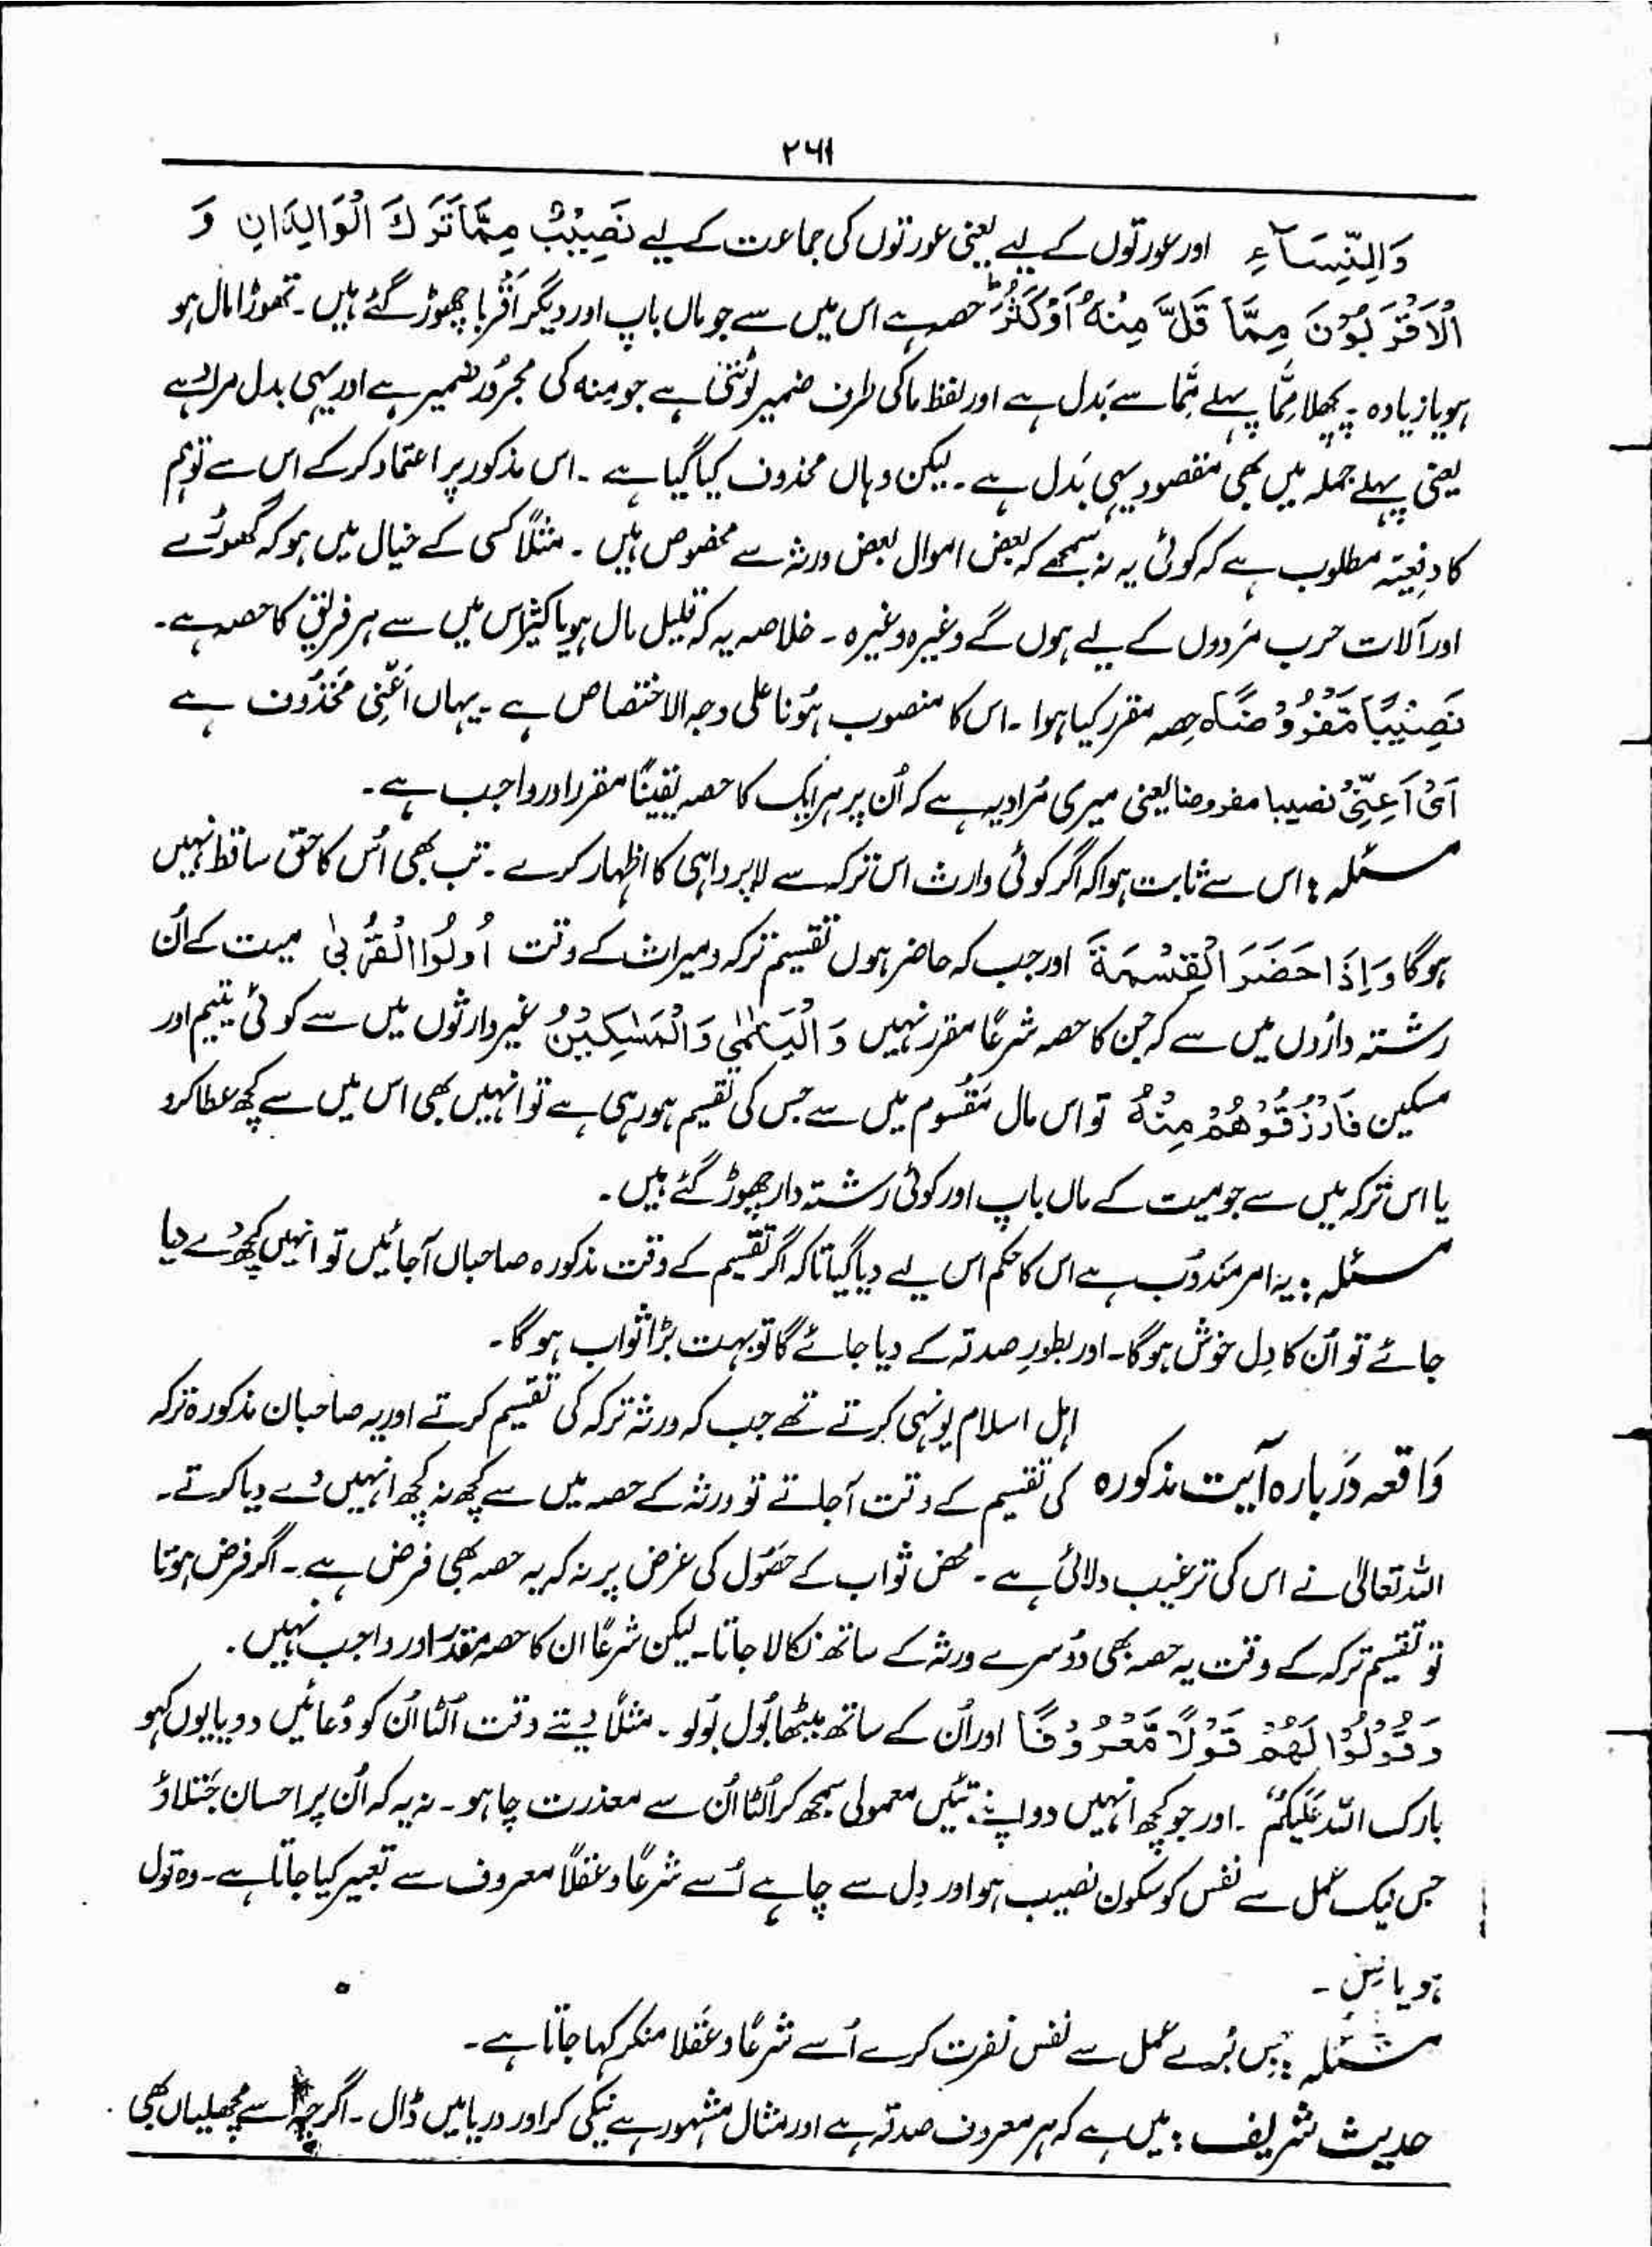 ۲۶۱
وَلِلنِّسَآءِ اور عورتوں کے لیے یعنی عورتوں کی جماعت کے لیے نَصِیْبٌ مِمَّا تَرَكَ الْوَالِدَانِ وَ
الْاَقْرَبُوْنَ مِمَّا قَلَّ مِنْهُ اَوْ كَثُرَ ط حصہ ہے اس میں سے جو ماں باپ اور دیگر اَقْرِبا چھوڑ گئے ہیں۔ تھوڑا مال ہو
ہو یا زیادہ۔ پچھلا مِمَّا پہلے مِمَّا سے بَدل ہے اور لفظ ما کی طرف ضمیر لوٹتی ہے جو مِنہ کی مجرور ضمیر ہے اور یہی بدل مراد ہے
یعنی پہلے جملہ میں بھی مقصود یہی بَدل ہے۔ لیکن وہاں محذوف کیا گیا ہے۔ اس مذکور پر اعتماد کر کے اس سے توہم
کا دفعیہ مطلوب ہے کہ کوئی یہ نہ سمجھے کہ بعض اموال بعض ورثہ سے مخصوص ہیں۔ مثلاً کسی کے خیال میں ہو کہ گھوڑے
اور آلات حرب مَردوں کے لیے ہوں گے وغیرہ وغیرہ۔ خلاصہ یہ کہ قلیل مال ہو یا کثیر اس میں سے ہر فریق کا حصہ ہے۔
نَصِیْبًا مَّفْرُوْضًا ہ حِصہ مقرر کیا ہوا۔ اس کا منصوب ہونا علی وجہ الاختصاص ہے۔ یہاں اَعْنِی مَحْذُوف ہے
اَیْ اَعْنِیْ نصیبا مفروضا یعنی میری مُراد یہ ہے کہ اُن پر ہر ایک کا حصہ یقینًا مقرر اور واجب ہے۔
مسئلہ : اس سے ثابت ہوا کہ اگر کوئی وارث اس ترکہ سے لاپرواہی کا اظہار کرے۔ تب بھی اُس کا حق ساقط نہیں
ہوگا وَاِذَا حَضَرَ الْقِسْمَةَ اور جب کہ حاضر ہوں تقسیم ترکہ و میراث کے وقت اُولُوا الْقُرْبیٰ میت کے اُن
رشتہ داروں میں سے کہ جن کا حصہ شرعًا مقرر نہیں وَالْیَتٰمٰی وَالْمَسٰكِیْنُ غیر وارثوں میں سے کوئی یتیم اور
مسکین فَارْزُقُوْهُمْ مِنْهُ تو اس مال مَقْسُوم میں سے جس کی تقسیم ہو رہی ہے تو انہیں بھی اس میں سے کچھ عطا کرو
یا اس ترکہ میں سے جو میت کے ماں باپ اور کوئی رشتہ دار چھوڑ گئے ہیں۔
مسئلہ : یہ امر مَندوب ہے اس کا حکم اس لیے دیا گیا تاکہ اگر تقسیم کے وقت مذکورہ صاحبان آجائیں تو انہیں کچھ دے دیا
جائے تو اُن کا دِل خوش ہوگا۔ اور بطورِ صدقہ کے دیا جائے گا تو بہت بڑا ثواب ہوگا۔
اہل اسلام یونہی کرتے تھے جب کہ ورثہ ترکہ کی تقسیم کرتے اور یہ صاحبان مذکورہ ترکہ
وَاقعہ دَربارہ آیت مذکورہ کی تقسیم کے وقت آجاتے تو ورثہ کے حصہ میں سے کچھ نہ کچھ انہیں دے دیا کرتے۔
اللہ تعالیٰ نے اس کی ترغیب دلائی ہے۔ محض ثواب کے حصُول کی غرض پر نہ کہ یہ حصہ بھی فرض ہے۔ اگر فرض ہوتا
تو تقسیم ترکہ کے وقت یہ حصہ بھی دُوسرے ورثہ کے ساتھ نکالا جاتا۔ لیکن شرعًا ان کا حصہ مقدر اور واجب نہیں۔
وَقُوْلُوْا لَهُمْ قَوْلًا مَّعْرُوْفًا اور اُن کے ساتھ میٹھا بول بولو۔ مثلاً دیتے وقت اُلٹا اُن کو دُعائیں دو یا یوں کہو
بارک اللہ عَلَیْکُمْ۔ اور جو کچھ انہیں دو اپنے تئیں معمولی سمجھ کر اُلٹا اُن سے معذرت چاہو۔ نہ یہ کہ اُن پر احسان جَتلاؤ
جس نیک عمل سے نفس کو سکون نصیب ہو اور دِل سے چاہے اُسے شرعًا و عقلًا معروف سے تعبیر کیا جاتا ہے۔ وہ قول
ہو یا
مسئلہ : جس بُرے عمل سے نفس نفرت کرے اُسے شرعًا و عقلا منکر کہا جاتا ہے۔
حدیث شریف : میں ہے کہ ہر معروف صدقہ ہے اور مثال مشہور ہے نیکی کر اور دریا میں ڈال۔ اگرچہ اسے مچھلیاں بھی